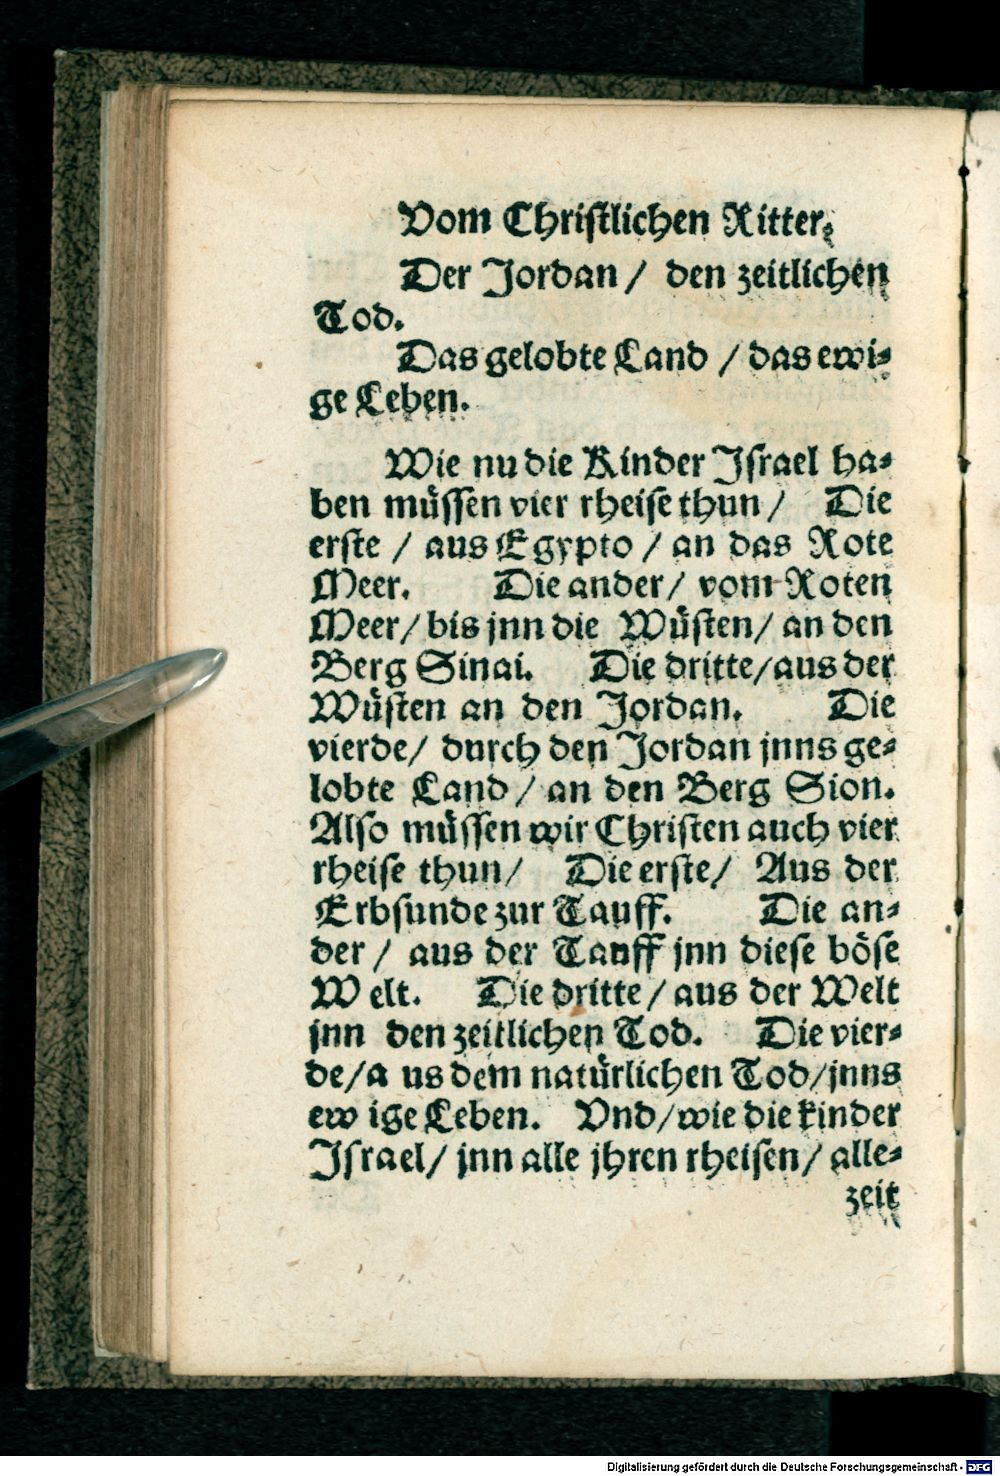 Vom Christlichen Ritter.
Der Jordan / den zeitlichen
Tod.
Das gelobte Land / das ewi⸗
ge Leben.
Wie nu die Kinder Jsrael ha⸗
ben müssen vier rheise thun / Die
erste / aus Egypto / an das Rote
Meer. Die ander / vom Roten
Meer / bis jnn die Wüsten / an den
Berg Sinai. Die dritte / aus der
Wüsten an den Jordan. Die
vierde / durch den Jordan jnns ge⸗
lobte Land / an den Berg Sion.
Also müssen wir Christen auch vier
rheise thun / Die erste / Aus der
Erbsunde zur Tauff. Die an⸗
der / aus der Tauff jnn diese böse
W elt. Die dritte / aus der Welt
jnn den zeitlichen Tod. Die vier⸗
de / a us dem natürlichen Tod / jnns
ew ige Leben. Vnd / wie die kinder
Jsrael / jnn alle jhren rheisen / alle⸗
zeit
Digitalisierung gefördert durch die Deutsche Forschungsgemeinschaft - DFG